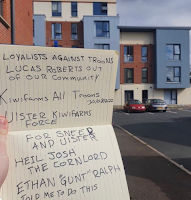 LOYALISTS AGAINST TROONS
LUCAS ROBERTS OUT
OF OUR COMMUNITY
KiwiFarms All Troons
ULSTER KIWIFARMS
FORCE
FOR SNEED
AND ULSTER
HEIL JOSH
THE CORNLORD
ETHAN "GUNT" RALPH
TOLD ME TO DO THIS